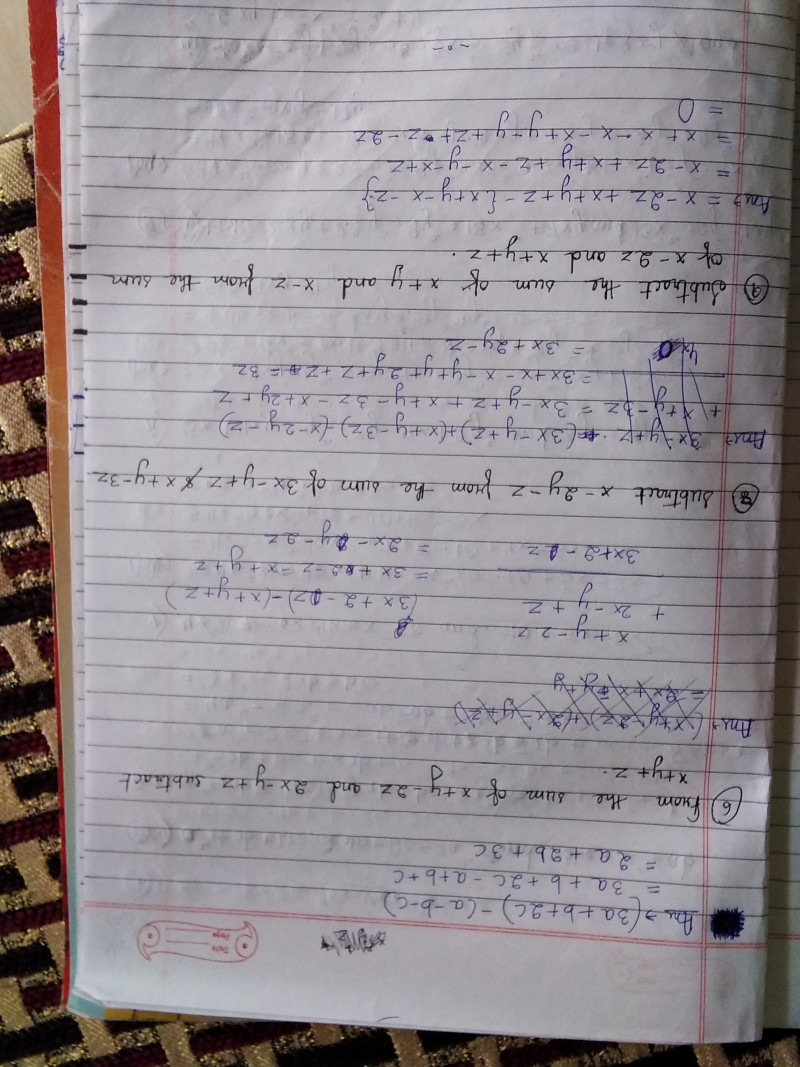 Date
Page
Ans→ (3a+b+2c) - (a-b-c)
= 3a + b + 2c - a + b + c
= 2a + 2b + 3c
⑥ From the sum of x+y-2z and 2x-y+z subtract
x+y+z.
Ans→ (x+y-2z)+(2x-y+z)
x+y-2z
+ 2x-y+z
3x+2-z
(3x+2-z)-(x+y+z)
= 3x+2-z=x+y+z
= 2x-y-2z
⑧ Subtract x-2y-z from the sum of 3x-y+z & x+y-3z
Ans→ 3x-y+z
+ x+y-3z
4x
(3x-y+z)+(x+y-3z)-(x-2y-z)
= 3x-y+z+x+y-3z-x+2y+z
= 3x+x-x-y+y+2y+z+z-3z
= 3x+2y-z
⑨ Subtract the sum of x+y and x-z from the sum
of x-2z and x+y+z.
Ans→ = x-2z+x+y+z-{x+y-x-z}
= x-2z+x+y+z-x-y-x+z
= x+x-x-x+y-y+z+z-2z
= 0